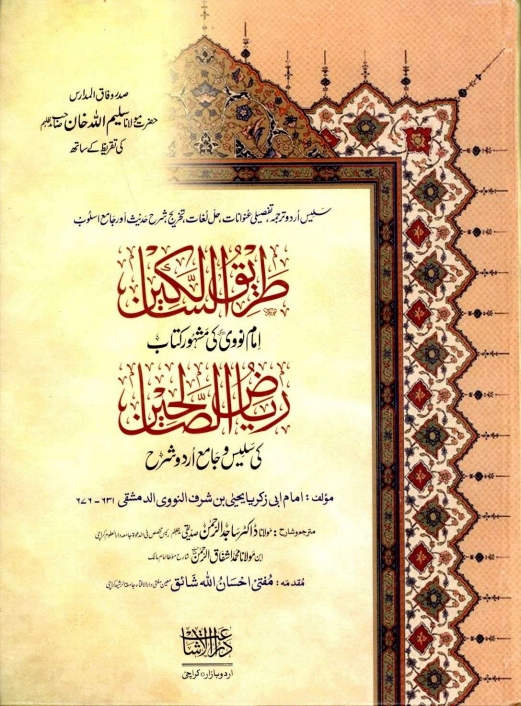 صدر وفاق المدارس
حضرت مولانا سلیم اللہ خان صاحب مدظلہم
کی تقریظ کے ساتھ
سلیس اُردو ترجمہ، تفصیلی عنوانات، حلِ لغات، تخریج، شرحِ حدیث اور جامع اسلوب
طریق السالکین
امام نووی کی مشہور کتاب
ریاض الصالحین
کی سلیس و جامع اُردو شرح
مؤلف: امام ابی زکریا یحییٰ بن شرف النووی الدمشقی ۶۳۱ - ۶۷۶
مترجم و شارح: مولانا ڈاکٹر ساجد الرحمٰن صدیقی
ابن مولانا محمد اشفاق الرحمٰن شارح مؤطا امام مالک
مقدمہ: مفتی احسان اللہ شائق معین مفتی دارالافتاء جامعۃ الرشید کراچی
دار الاشاعت
اردو بازار، کراچی